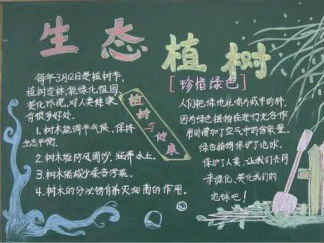 生态植树
每年3月12日是植树节,
植树造林,能绿化祖国,
美化环境,对人类健康
有很多好处。
1.树木能调节气候,保持
生态平衡。
2.树木能防风固沙,涵养水土。
3.树木能减少噪音污染。
4.树木的分泌物有杀灭细菌的作用。
植树与健康
[珍惜绿色]
人们把绿地比喻为城市的肺,
因为绿色植物能进行光合作
用而增加了空气中的含氧量。
绿色植物保护了地球,
保护了人类,让我们共同
来绿化、美化我们的
地球吧!